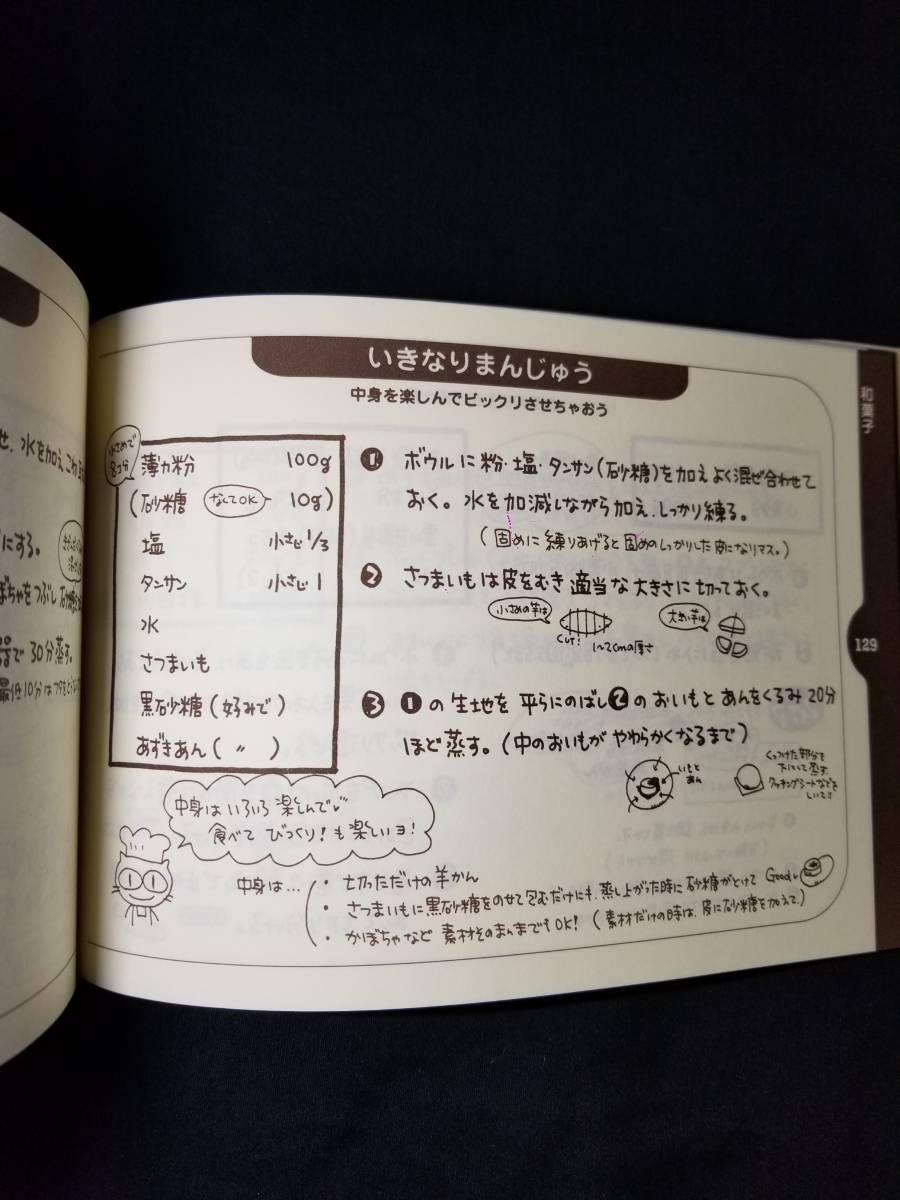 せ、水を加え、こね
にする。
ぼちゃをつぶし砂糖
で30分蒸す。
いきなりまんじゅう
中身を楽しんでビックリさせちゃおう
和菓子
129
小さめで
8コ分
薄力粉 100g
(砂糖 なくてOK 10g)
塩 小さじ1/3
タンサン 小さじ1
水
さつまいも
黒砂糖(好みで)
あずきあん(〃)
❶ ボウルに粉・塩・タンサン(砂糖)を加えよく混ぜ合わせて
おく。水を加減しながら加え、しっかり練る。
(固めに練りあげると固めのしっかりした皮になりマス。)
❷ さつまいもは皮をむき適当な大きさに切っておく。
小さめの芋は
CUT!
1〜2cmの厚さ
大きい芋は
❸ ❶の生地を平らにのばし❷のおいもとあんをくるみ20分
ほど蒸す。(中のおいもがやわらかくなるまで)
いもと
あん
くっつけた部分を
下にして蒸す。
クッキングシートなどを
しいて!!
中身はいろいろ楽しんで♡
食べてびっくり!も楽しいヨ!
中身は…
・切っただけの羊かん
・さつまいもに黒砂糖をのせ包むだけにも、蒸し上がった時に砂糖がとけてGood
・かぼちゃなど素材そのまんまでもOK!(素材だけの時は、皮に砂糖を加えて)